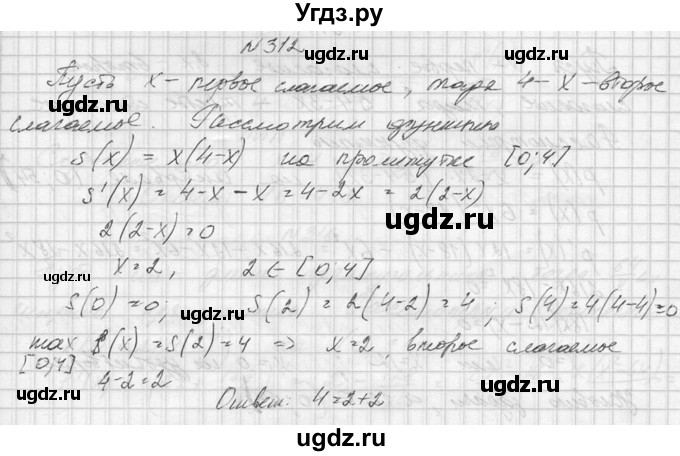 Угдз.ру
N 312
Пусть x – первое слагаемое, тогда 4 – x – второе
слагаемое. Рассмотрим функцию
S(x) = x(4-x) на промежутке [0;4]
S'(x) = 4-x-x = 4-2x = 2(2-x)
2(2-x)=0
x=2, 2 ∈ [0;4]
S(0)=0; S(2)=2(4-2)=4; S(4)=4(4-4)=0
max S(x)=S(2)=4 => x=2, второе слагаемое
[0;4]
4-2=2
Ответ: 4=2+2
ugdz.ru
ugdz.ru
ugdz.ru
ugdz.ru
ugdz.ru
ugdz.ru
ugdz.ru
ugdz.ru
ugdz.ru
ugdz.ru
ugdz.ru
ugdz.ru